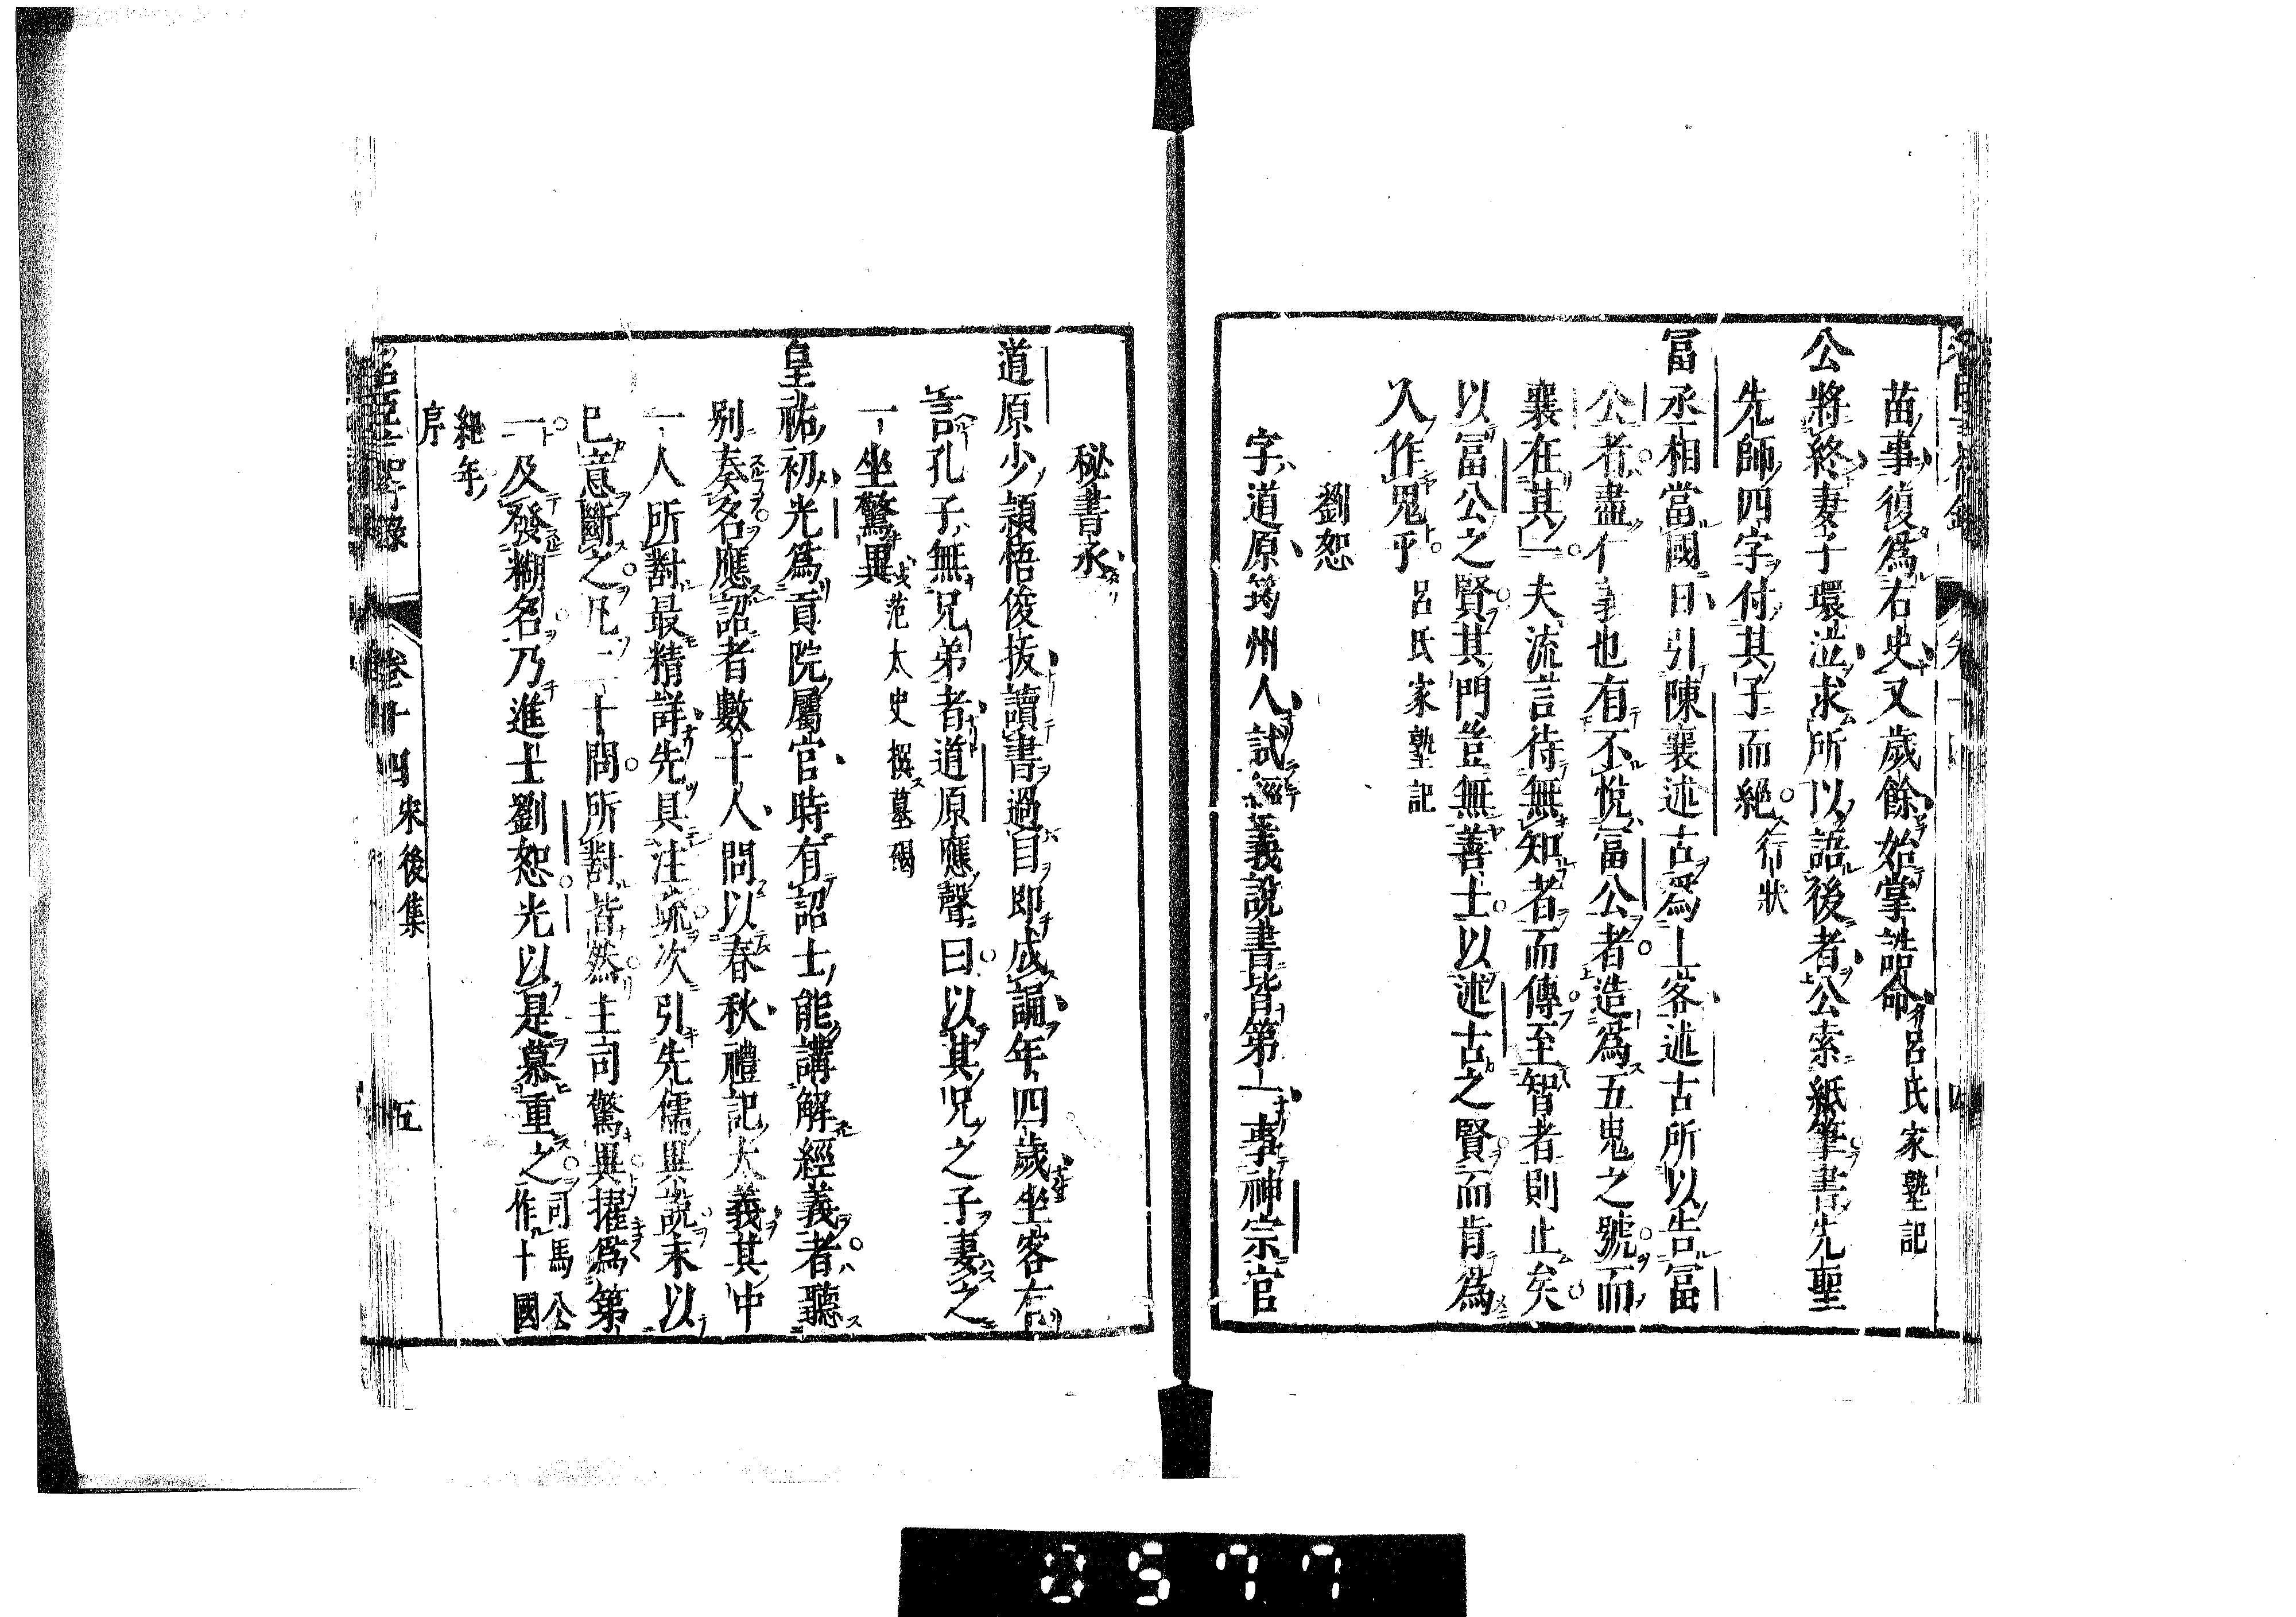 苗事復爲右史又歲餘始掌誥命呂氏家塾記
公將終妻子環泣求所以語後者公索紙筆書先聖
先師四字付其子而絕行狀
冨丞相當國日引陳襄述古爲上客述古所以告冨
公者盡仁事也有不悅冨公者造爲五鬼之號而
襄在其一夫流言待無知者而傳至智者則止矣
以冨公之賢其門豈無善士以述古之賢而肯爲
人作鬼乎呂氏家塾記
劉恕
字道原筠州人試經義說書皆第一事神宗官
秘書丞
道原少頴悟俊拔讀書過目即成誦年四歲坐客有
言孔子無兄弟者道原應聲曰以其兄之子妻之
一坐驚異范太史撰墓碣
皇祐初光爲貢院屬官時有詔士能講解經義者聽
別奏名應詔者數十人問以春秋禮記大義其中
一人所對最精詳先具注疏次引先儒異說末以
已意斷之凡二十問所對皆然主司驚異擢爲第
一及發糊名乃進士劉恕光以是慕重之司馬公作十國
紀年
序
名臣言行錄
卷十四
宋後集
五
0577